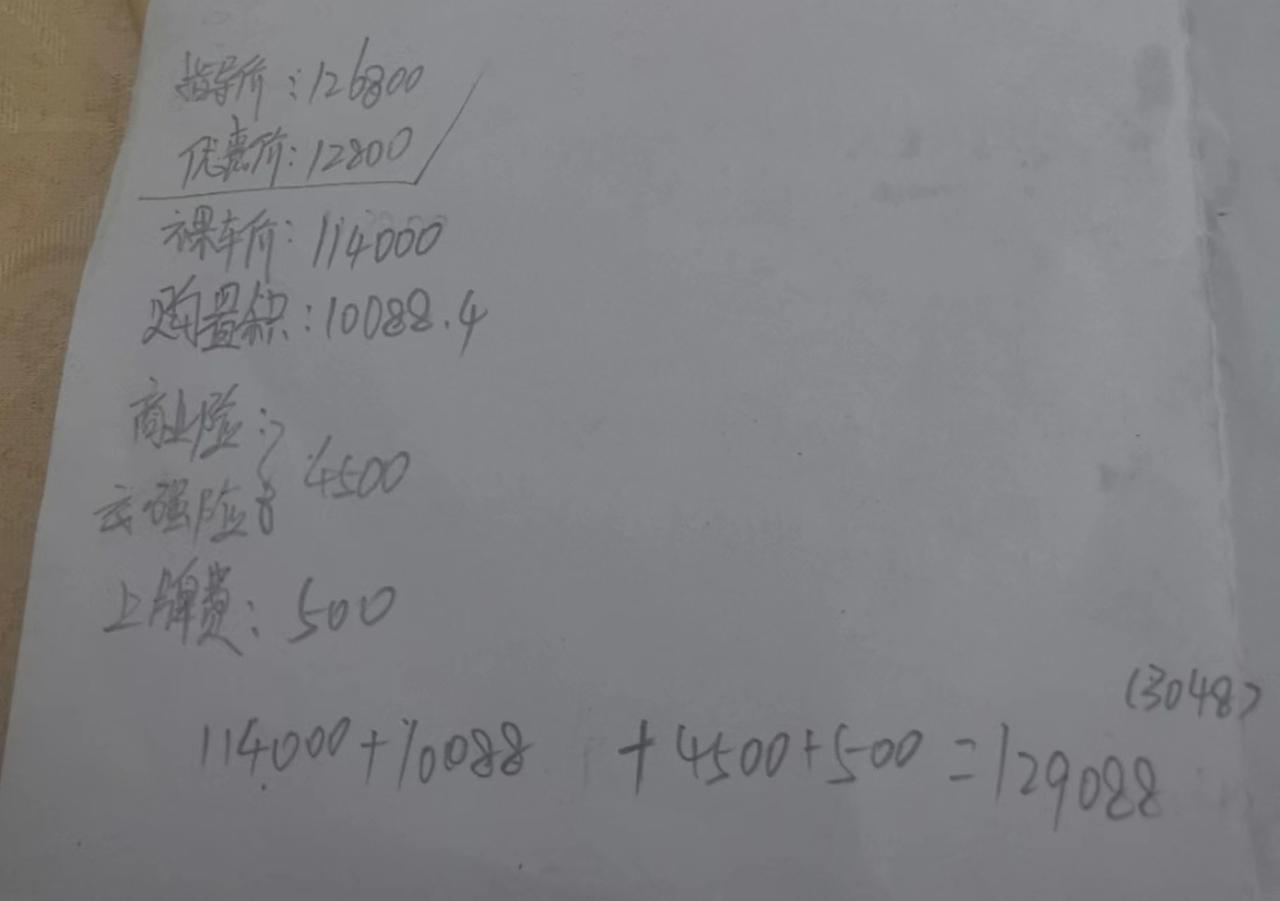 指导价：126800
优惠价：12800
裸车价：114000
购置税：10088.4
商业险：
交强险
4500
上牌费：500
(3048)
114000+10088 +4500+500=129088